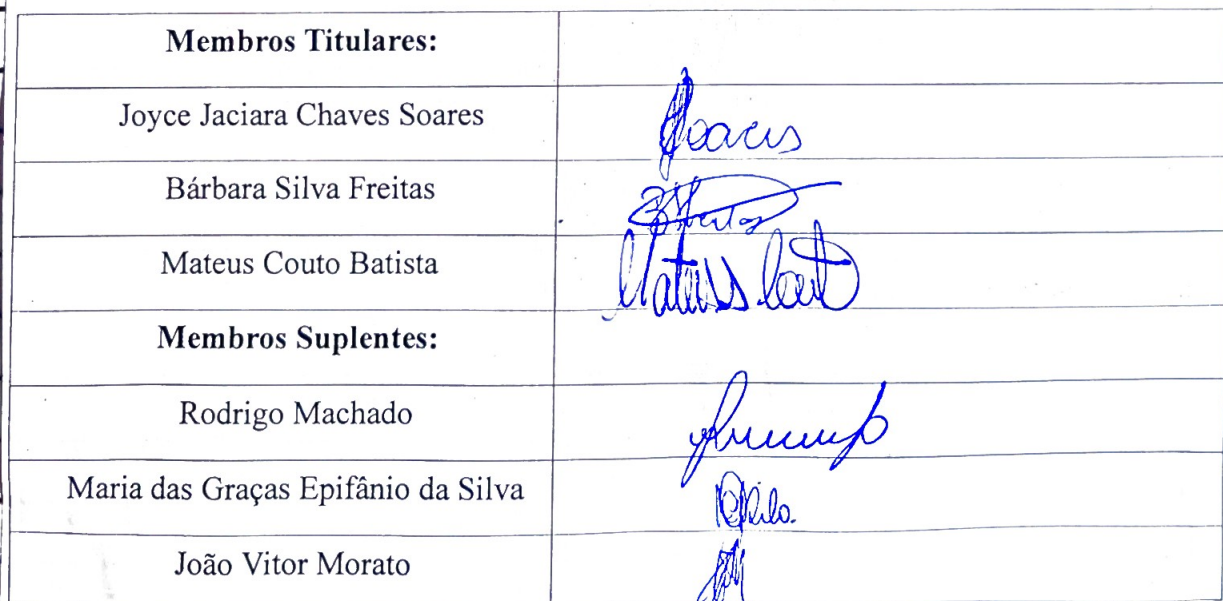 Membros Titulares:
Joyce Jaciara Chaves Soares
Bárbara Silva Freitas
Mateus Couto Batista
Membros Suplentes:
Rodrigo Machado
Maria das Graças Epifânio da Silva
João Vitor Morato